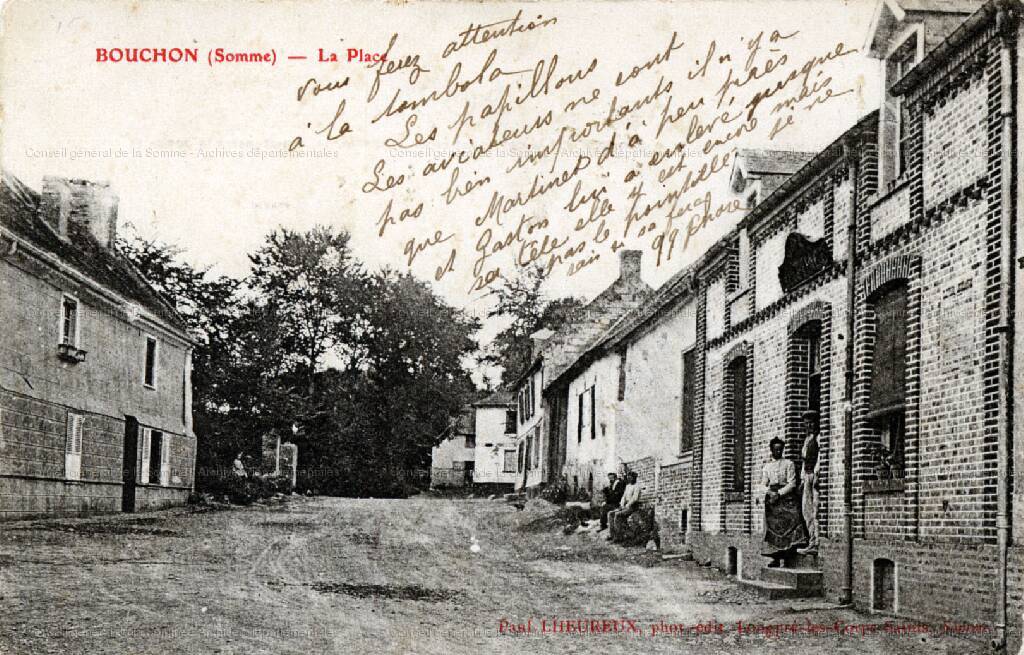 BOUCHON (Somme) — La Place
vous ferez attention
à la tombola
Les papillons
Les aviateurs ne sont
pas bien importants il n'y a
que Martinet d'à peu près
et Gaston lui a enlevé presque
sa tête elle y est encore mais
pas le pointillé je ne
sais si sa fera
qq chose
Conseil général de la Somme - Archives départementales
Paul LHEUREUX, phot. édit. Longpré-les-Corps-Saints, Somme